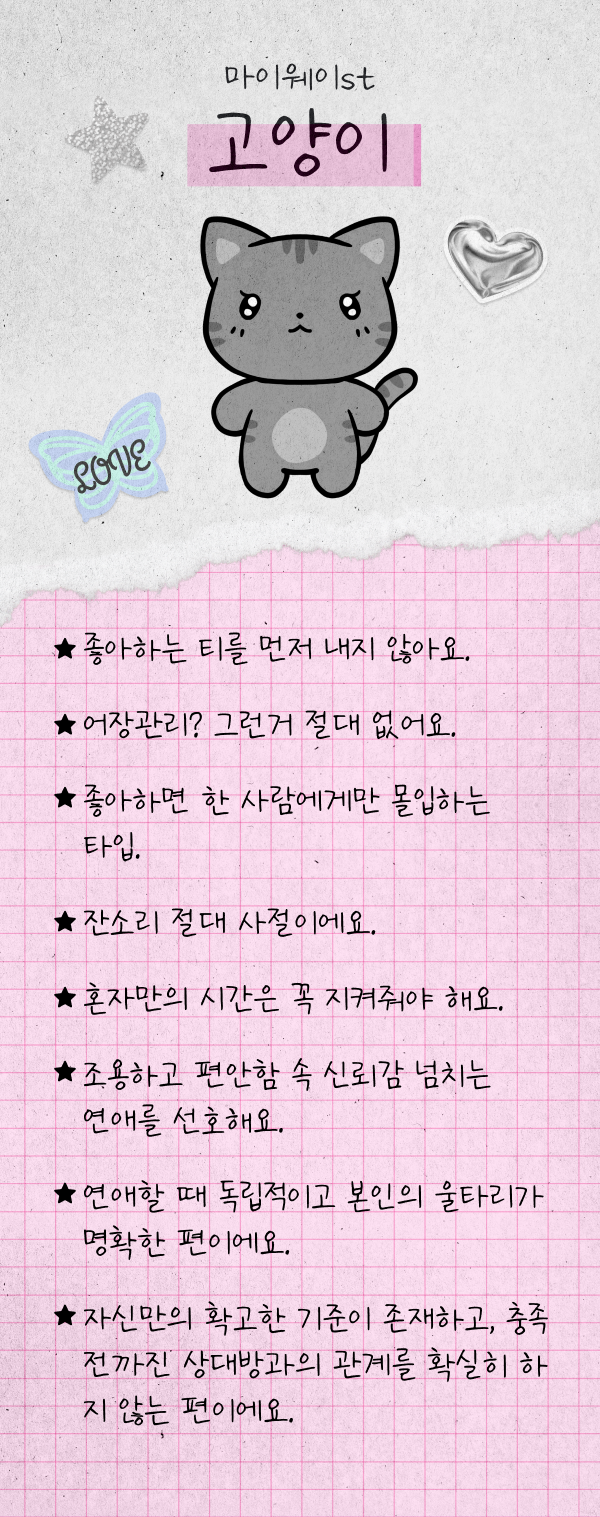 마이웨이st
고양이
LOVE
★ 좋아하는 티를 먼저 내지 않아요.
★ 어장관리? 그런거 절대 없어요.
★ 좋아하면 한 사람에게만 몰입하는
타입.
★ 잔소리 절대 사절이에요.
★ 혼자만의 시간은 꼭 지켜줘야 해요.
★ 조용하고 편안함 속 신뢰감 넘치는
연애를 선호해요.
★ 연애할 때 독립적이고 본인의 울타리가
명확한 편이에요.
★ 자신만의 확고한 기준이 존재하고, 충족
전까진 상대방과의 관계를 확실히 하
지 않는 편이에요.